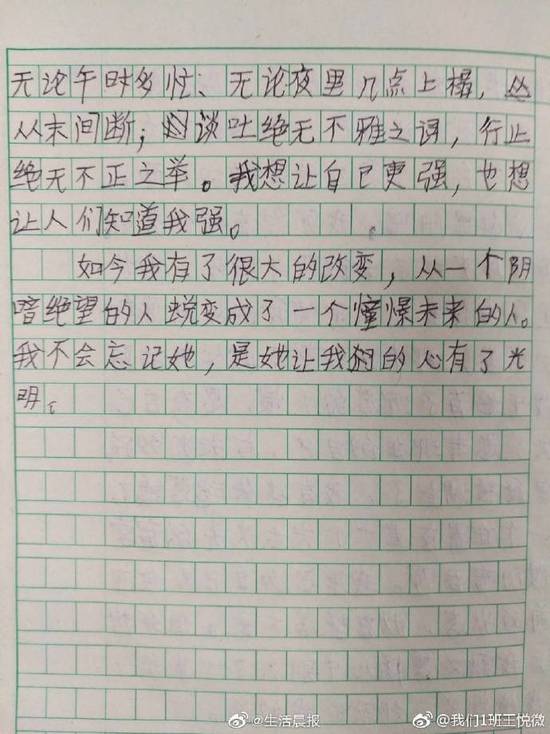 无论午时多忙、无论夜里几点上榻，
从未间断；谈吐绝无不雅之词，行止
绝无不正之举。我想让自已更强，也想
让人们知道我强。
如今我有了很大的改变，从一个阴
暗绝望的人蜕变成了一个憧憬未来的人。
我不会忘记她，是她让我的心有了光
明。
@生活晨报
@我们1班王悦微